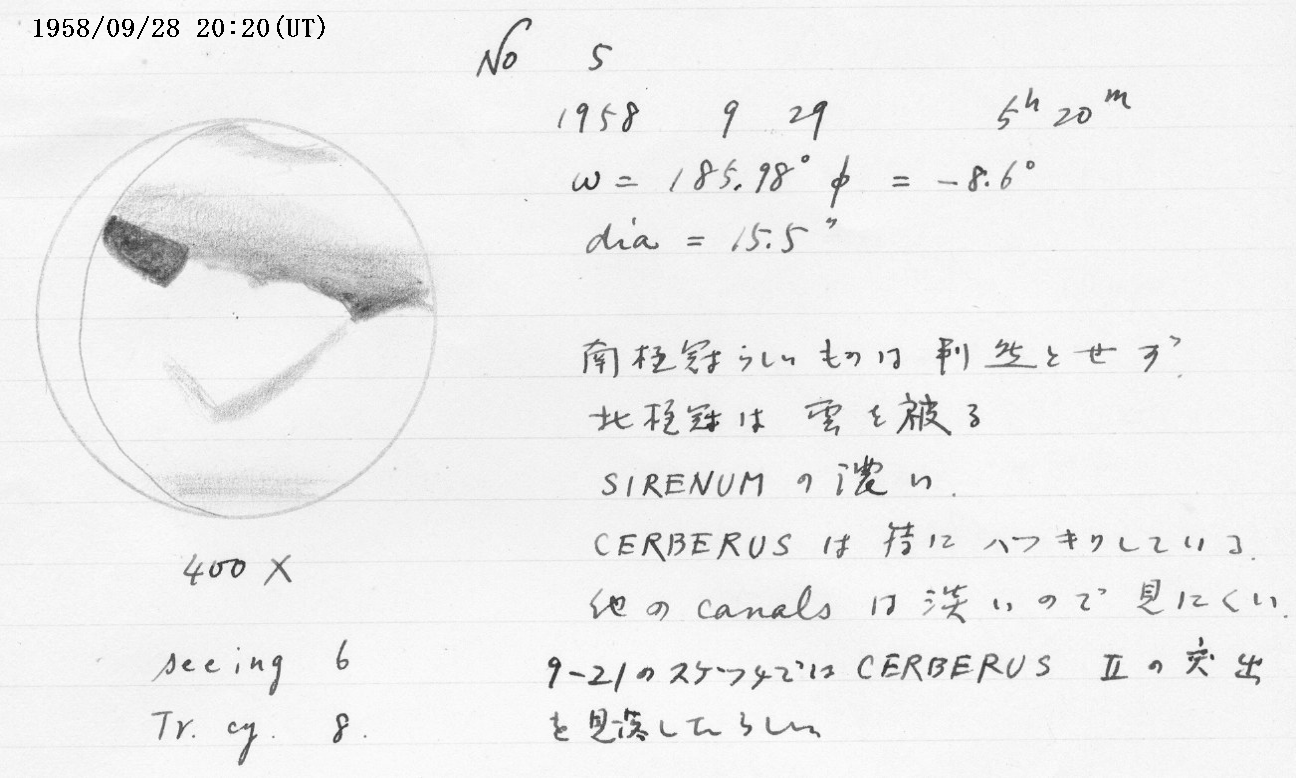 1958/09/28 20:20(UT)
No 5
1958 9 29 5h 20m
ω = 185.98° φ = -8.6°
dia = 15.5"
南極冠らしいものは判然とせず.
北極冠は雲を被る
SIRENUMの濃い.
CERBERUSは特にハッキリしている.
他のcanalsは淡いので見にくい.
9-21のスケッチではCERBERUS IIの突出
を見落したらしい
400X
seeing 6
Tr. cy. 8.